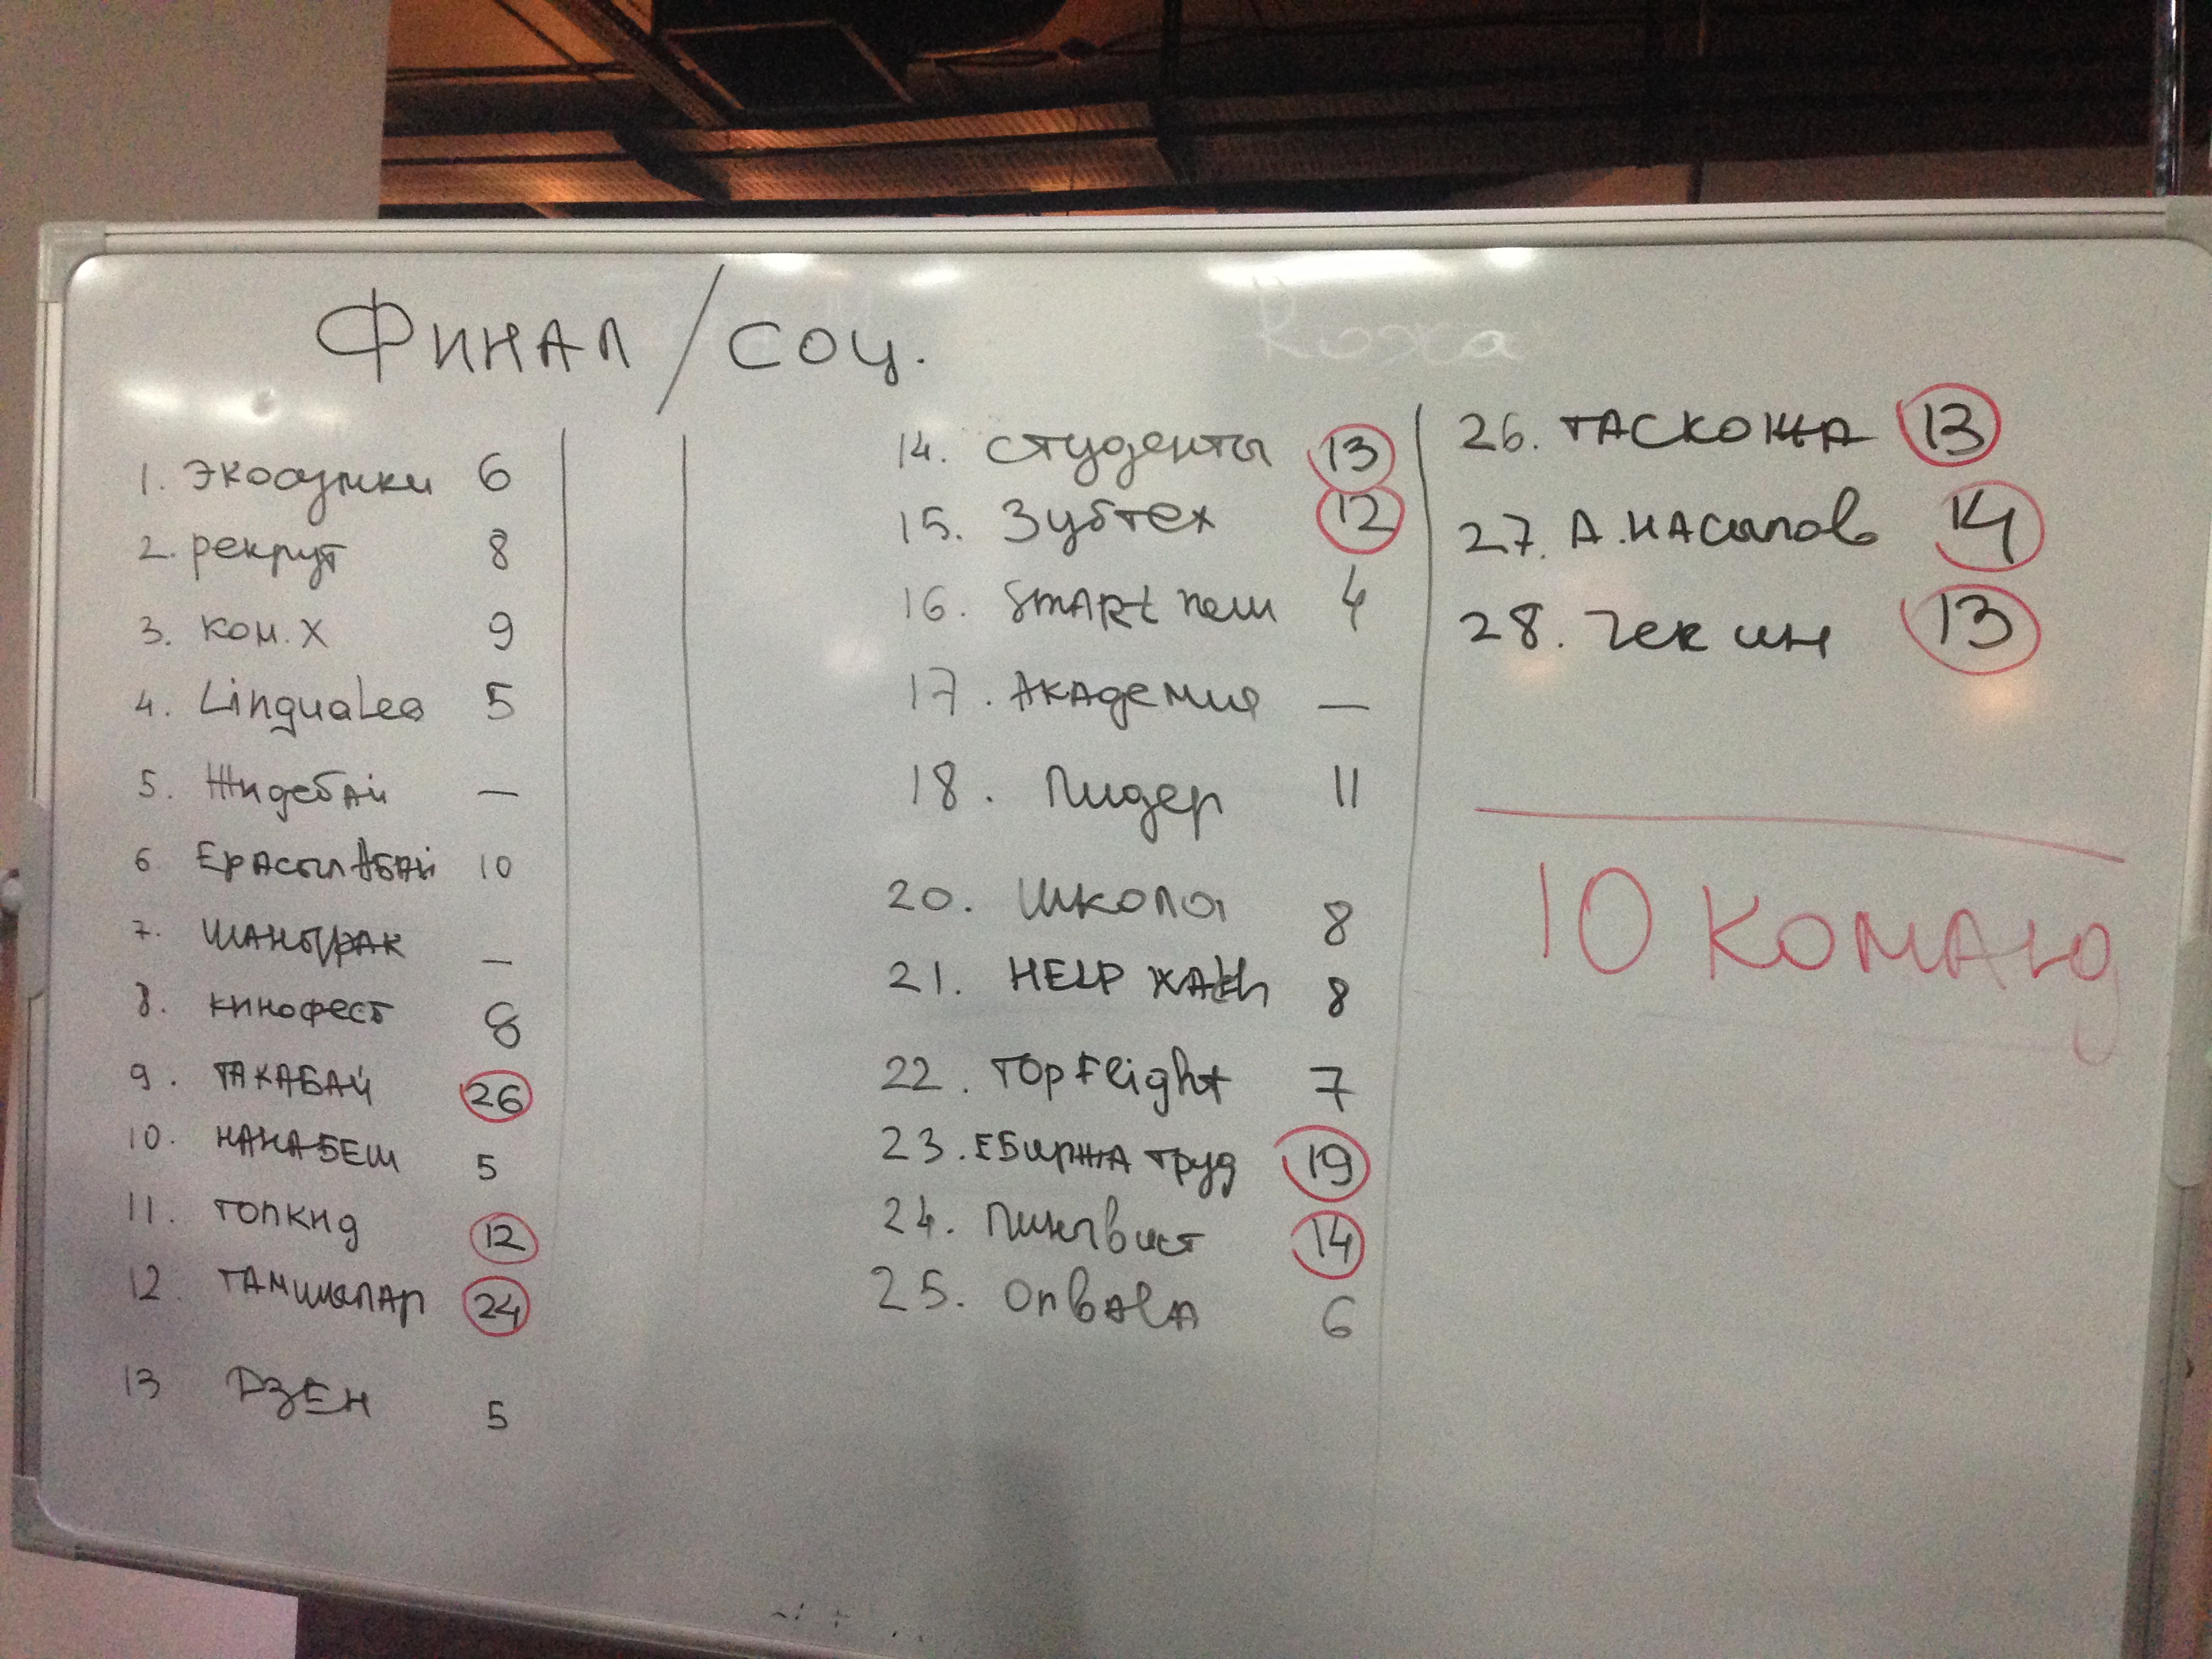 Финал / соц.
1. Экосумки 6
2. рекрут 8
3. ком. X 9
4. LinguaLeo 5
5. Жидебай —
6 Ерасыл Абай 10
7. Шанырак —
8. кинофест 8
9. ТАКАБАЙ 26
10. НАНАБЕШ 5
11. ТОПКИД 12
12. ТАМШЫЛАР 24
13 ДЗЕН 5
14. студенты 13
15. Зубтех 12
16. SMARt 4
17. Академия —
18. Лидер 11
20. Школа 8
21. HELP 8
22. TOpFlight 7
23. ЕБиржа труд 19
24. Лингвист 14
25. 6
26. ТАСКОЖА 13
27. А. НАсыпов 14
28. Чекин 13
10 команд